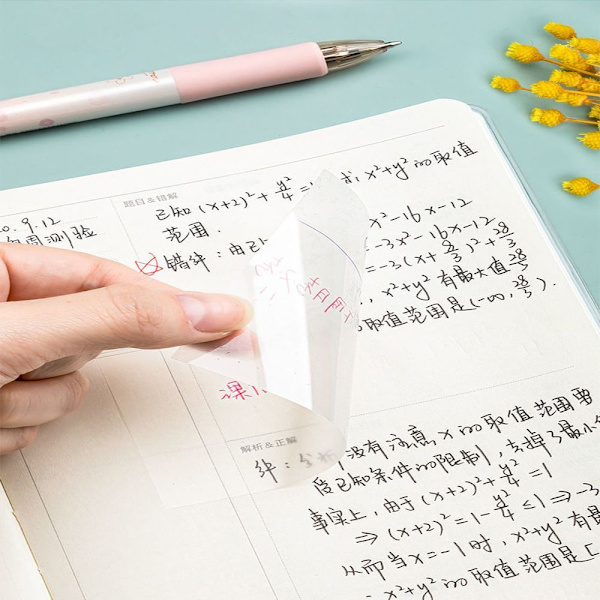 题目&错解
0.9.12
周测验
已知 (x+2)²+y²/4=1 求 x²+y² 的取值
范围.
错解: 由已
x²-16x-12
=-3x²-16x-12
=-3(x+8/3)²+28/3
x²+y² 有最大值 28/3
取值范围是(-∞, 28/3).
课
解析&正解
解:
没有注意 x 的取值范围要
受已知条件的限制, 丢掉了最小
事实上, 由于 (x+2)²+y²/4=1
⇒ (x+2)²=1-y²/4≤1⇒-3
从而当 x=-1 时, x²+y² 有最
x²+y² 的取值范围是[